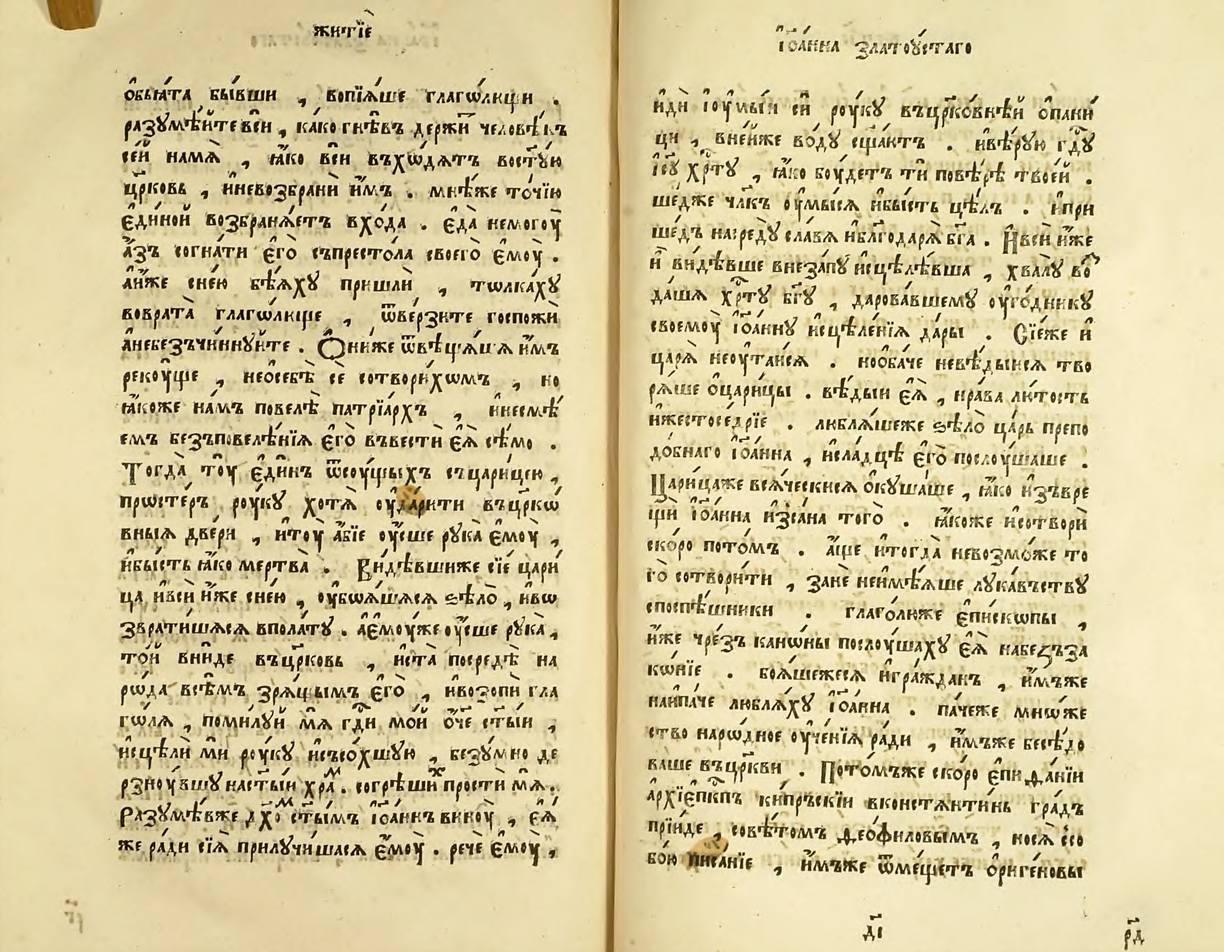 житїѐ
ѻ҆бьѧ́та бы́вши , вопїѧ́ше глаго́лющи .
разꙋмѣ́йтевсѝ , ка́ко гнѣ́въ держи́т человѣ́къ
се́й намѧ̀ , ꙗ҆́ко всѝ въхѡ́дѧтъ востꙋ́ю
цр҃ковь , и҆невозбрани́ и҆̀мъ . мнѣ́же то́чїю
є҆ди́ной возбранѧ́етъ вхо́да . є҆да̀ немогꙋ̀
а҆́зъ согна́ти є҆го̀ съпресто́ла своего̀ є҆мꙋ̀ .
а҆и҆́же сне́ю бѣ́ѧхꙋ пришлѝ , тѡлка́хꙋ
вовратà глаго́люще , ѿве́рзите госпожѝ
а҆небезъчи́ннꙋйте . Ѻ҆ни́же ѿвѣща́шѧ и҆̀мъ
рекꙋ́ще , неѻ҆себѣ̀ сѐ сотвори́хомъ , но
ꙗ҆́коже на́мъ повелѣ̀ патрїа́рхъ , и҆несмѣ́
емъ безъповелѣ́нїѧ є҆го̀ въвестѝ є҆ѧ̀ сѣ́мо .
Тогда̀ тꙋ̀ є҆ди́нъ ѿсꙋ́щыхъ съцари́цею ,
просте́ръ рꙋ́кꙋ хотѧ̀ ᲂу҆да́рити въцр҃кѡ́
вныѧ две́ри , и҆тꙋ̀ а҆́бїе ᲂу҆́сше рꙋка̀ є҆мꙋ̀ ,
и҆бы́сть ꙗ҆́ко мертва̀ . Ви́дѣвшиже сїѐ цари́
ца и҆всѝ и҆̀же сне́ю , ᲂу҆боѧ́шѧсѧ ѕѣло̀ , и҆вѡ
звратишѧсѧ вполатꙋ . а҆є҆мꙋ́же ᲂу҆́сше рꙋка̀ ,
то́й вни́де въцр҃ковь , и҆ста̀ посредѣ̀ на
рѡ́да всѣ̀мъ зрѧ́щымъ є҆го̀ , и҆возопѝ гла
го́лѧ , поми́лꙋй мѧ̀ гд҃и мо́й ѻ҆́че ст҃ы́й ,
и҆сцѣлѝ мѝ рꙋ́кꙋ и҆съсо́хшꙋю , безꙋ́мно де
рзнꙋ́вшꙋ наст҃ы́й хра́м . согрѣши́х простѝ мѧ̀ .
Разꙋмѣ́вже дх҃ом ст҃ы́мъ і҆ѡа́ннъ винꙋ̀ , є҆ѧ̀
же ра́ди сїѧ̀ прилꙋчи́шасѧ є҆мꙋ̀ . речѐ є҆мꙋ̀ ,
і҆ѡа́нна златоꙋ́стаго
и҆дѝ і҆ᲂу҆мы́й сѝ рꙋ́кꙋ въцр҃ко́внѣй ѻ҆пани́
ци , вне́йже во́дꙋ ст҃ѧ́тъ . и҆вѣ́рꙋю гдⷭ҇ꙋ
і҆сꙋ хрⷭ҇тꙋ̀ , ꙗ҆́ко бꙋ́детъ тѝ повѣ́рѣ твое́й .
ше́дже чл҃къ ᲂу҆мы́сѧ и҆бы́сть цѣ́лъ . і҆при
ше́дъ насредꙋ̀ сла́вѧ и҆бл҃годарѧ̀ бг҃а . И҆всѝ и҆̀же
и҆̀ ви́дѣвше внеза́пꙋ и҆сцѣлѣ́вша , хвалꙋ̀ во
да́шѧ хрⷭ҇тꙋ̀ бг҃ꙋ , дарова́вшемꙋ ᲂу҆го́дникꙋ
своемꙋ̀ і҆ѡа́ннꙋ и҆сцѣле́нїѧ да́ры . Сїе́же и҆
царѧ̀ неᲂу҆таи́сѧ .ноѻ҆ба́че невѣ́дыисѧ тво
рѧ́ше ѻ҆цари́цы . вѣ́дыи є҆ѧ̀ , нра́ва лю́тость
и҆жестосе́рдїе . любѧ́шеже ѕѣло̀ ца́рь препо
до́бнаго і҆ѡа́нна , и҆сла́дцѣ є҆го̀ послꙋ́шаше .
Цари́цаже всѧ́ческисѧ ѻ҆кꙋша́ше , ꙗ҆́ко и҆зъвре
щѝ і҆ѡа́нна и҆зса́на того̀ . ꙗ҆́коже и҆сотворѝ
ско́ро пото́мъ . а҆́ще и҆тогда̀ невозмо́же то
го̀ сотвори́ти , занѐ неи҆мѣ́ѧше лꙋка́вствꙋ
споспѣ́шники . глаго́люже є҆пи́скопы ,
и҆̀же чре́зъ кано́ны послꙋ́шахꙋ є҆ѧ̀ набеззa
ко́нїе . боѧ́шежесѧ и҆гра́жданъ , и҆̀мъже
наипа́че люблѧ́хꙋ і҆ѡа́нна . па́чеже мно́же
ство наро́дное ᲂу҆че́нїѧ ра́ди , и҆́мъже бесѣ́до
ваше въцр҃кви . Пото́мъже ско́ро є҆пифа́нїи
а҆рхїепⷭ҇кпъ ки́прьскїи вконстѧнти́нь гра́дъ
прїи́де , совѣ́томъ Ѳео́филовымъ , носѧ̀ ссо
бо́ю писа́нїе , и҆́мъже ѿме́щетъ ѻ҆риге́новы
д҃і
р҃д